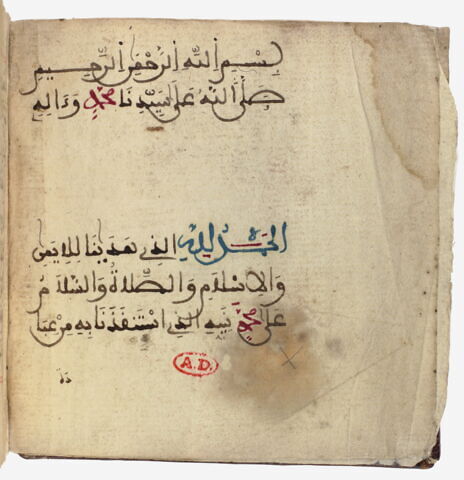 بسم الله الرحمن الرحيم
صلى الله على سيدنا محمد وءاله
الحمد لله الذي هدينا للايمن
والاسلام والصلاة والسلام
على محمد نبيه الذي استنقذنا به من عبا
A.D.
دة